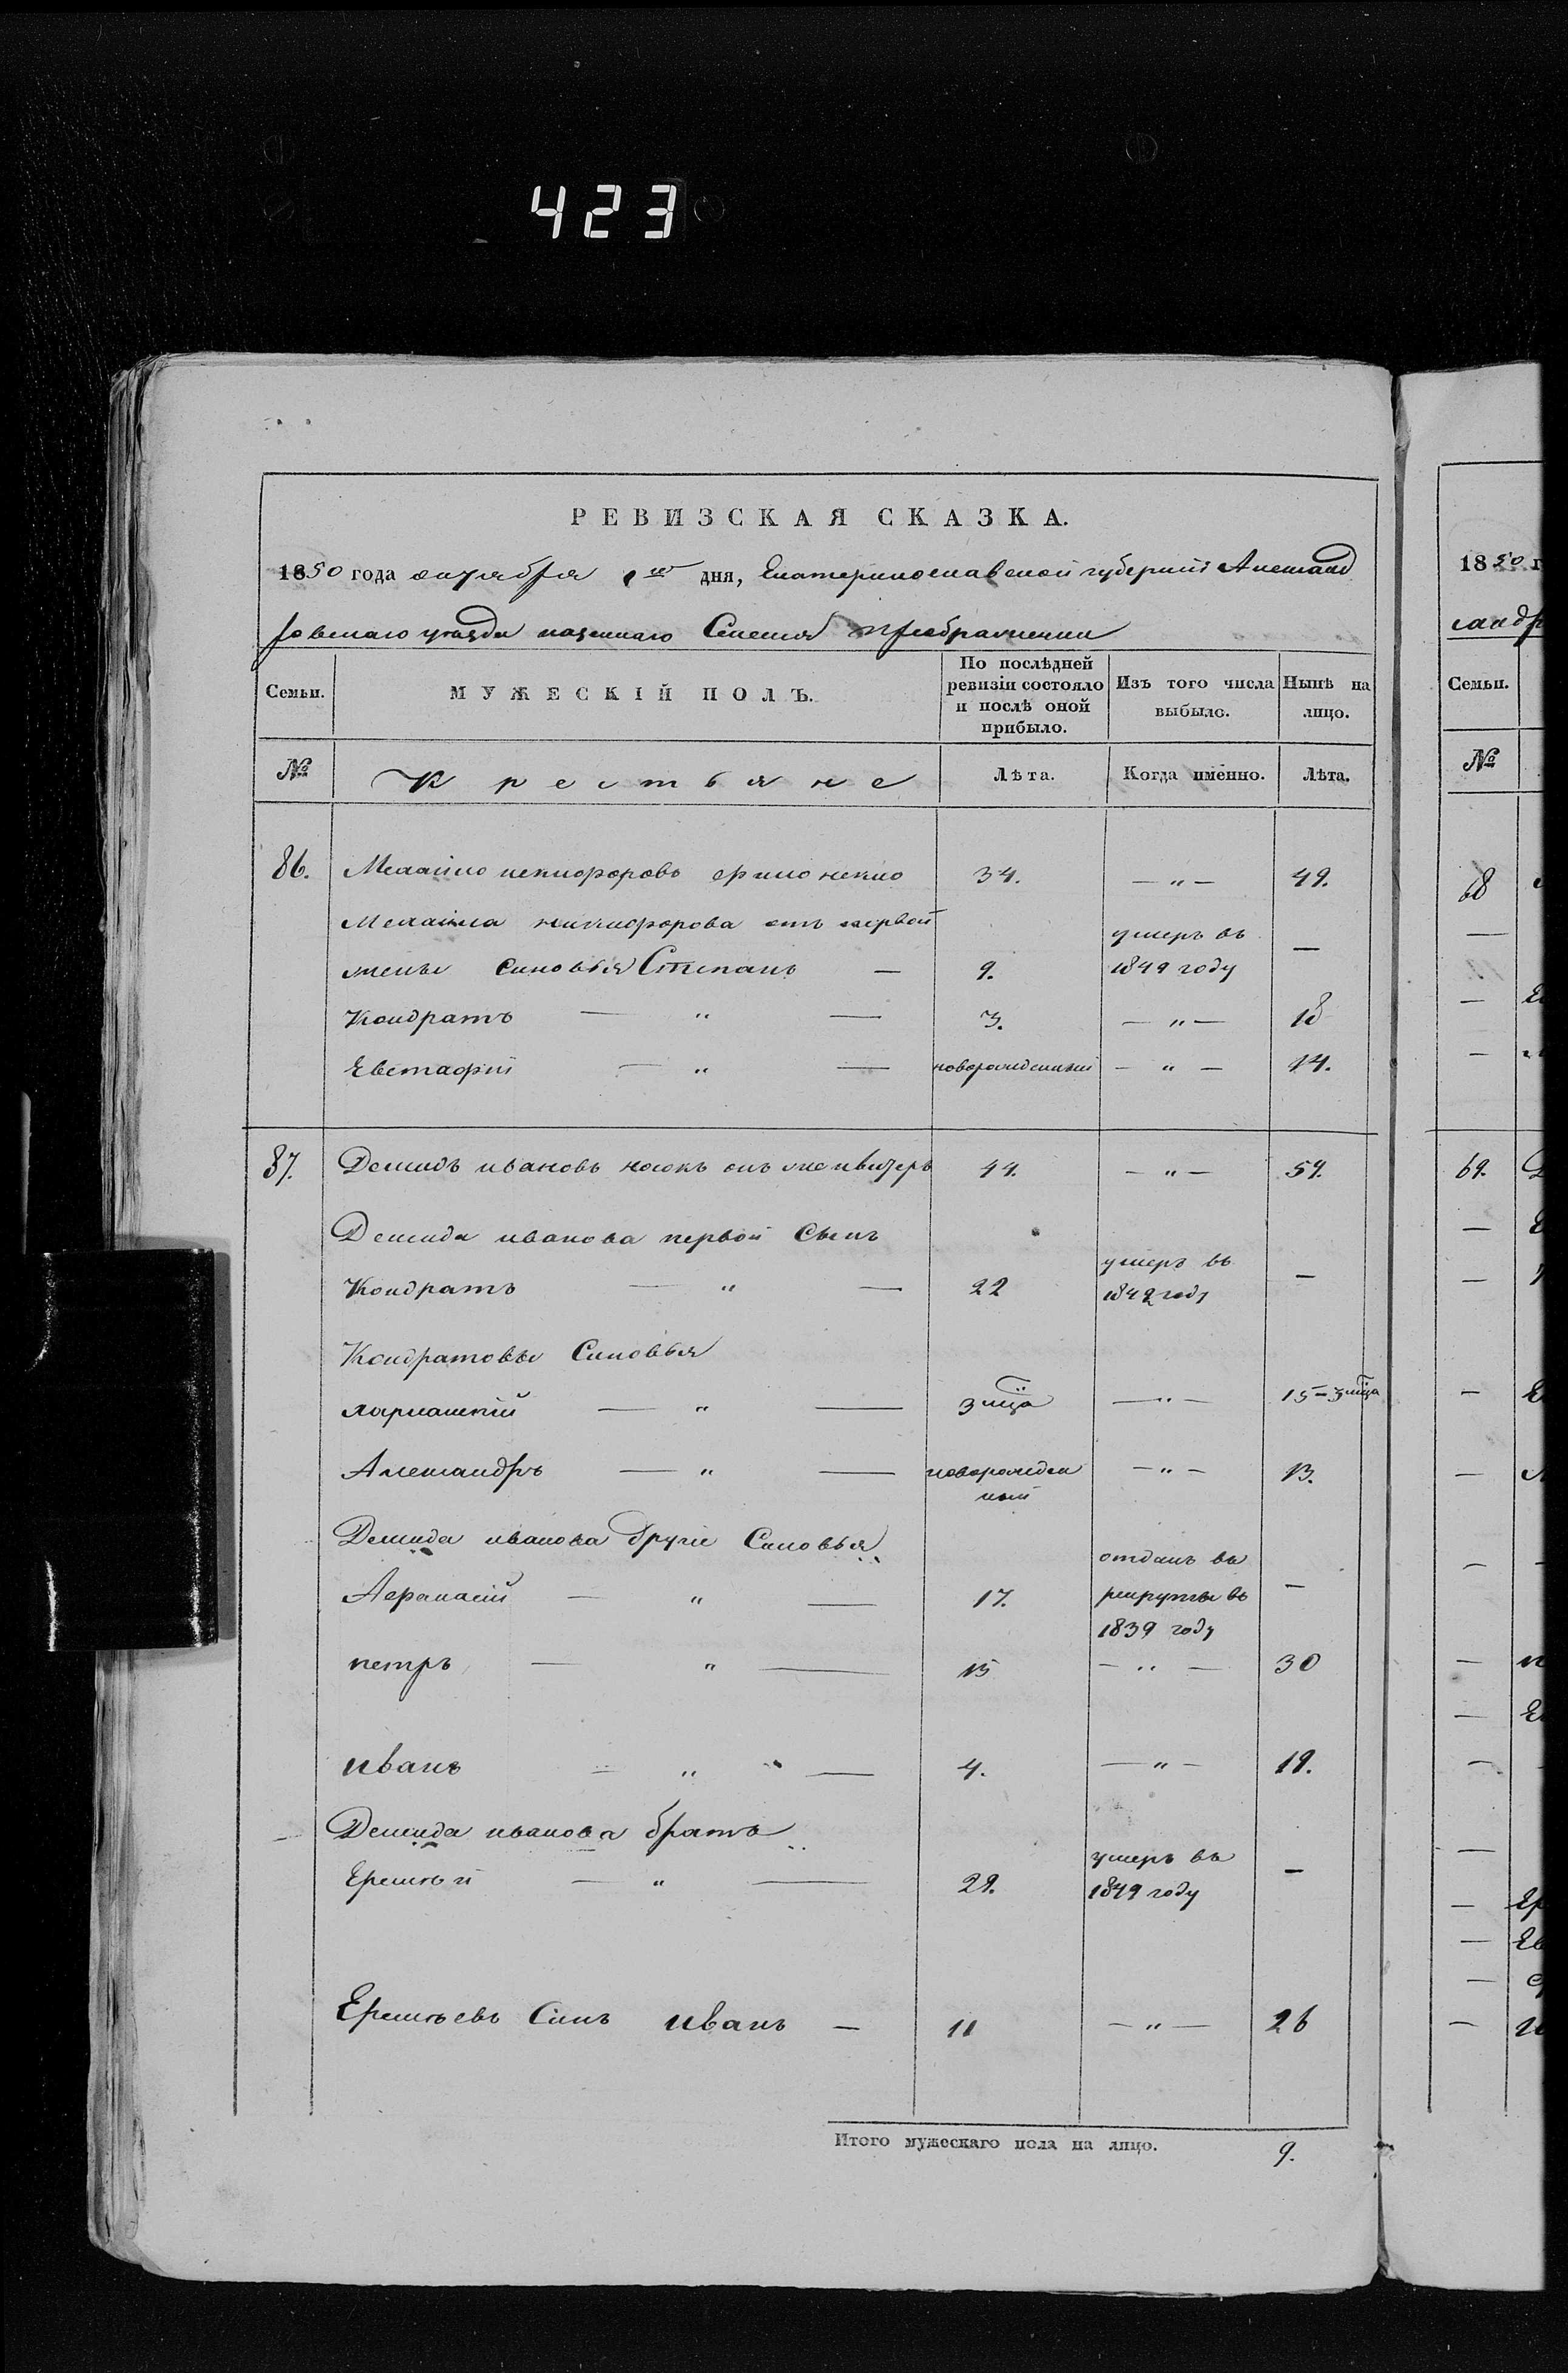 423
РЕВИЗСКАЯ СКАЗКА.
1850 года октября 1го дня, Екатеринославской губернии Александ
ровскаго уезда казеннаго Селения преображенки
Семьи.
МУЖЕСКІЙ ПОЛЪ.
По послѣдней ревизіи состояло и послѣ оной прибыло.
Изъ того числа выбыло.
Нынѣ на лицо.
№
Крестьяне
Лѣта.
Когда именно.
Лѣта.
86. 34. — „ — 49.
никифорова отъ первой
жены синовья Степанъ — 9. умеръ въ 1849 году —
Кондратъ — „ — 3. — „ — 18
Евстафій — „ — новорожденный — „ — 14.
87. Демидъ ивановъ носокъ онъ же 44. — „ — 59.
Демида иванова первой Сынъ
Кондратъ — „ — 22 умеръ въ 1842 году —
Кондратовы Синовья
— „ — 3 мца — „ — 15-3 мца
Александръ — „ — новорожден ный — „ — 13.
Демида иванова другие Синовья
Афанасий — „ — 17. отданъ въ рекруты въ 1839 году —
петръ — „ — 15 — „ — 30
иванъ — „ — 4. — „ — 19.
Демида иванова братъ
Еремѣй — „ — 29. умеръ въ 1849 году —
Еремѣевъ Синъ иванъ — 11 — „ — 26
Итого мужескаго пола на лицо. 9.
1850 г
сандр
Семьи.
№
68
69.